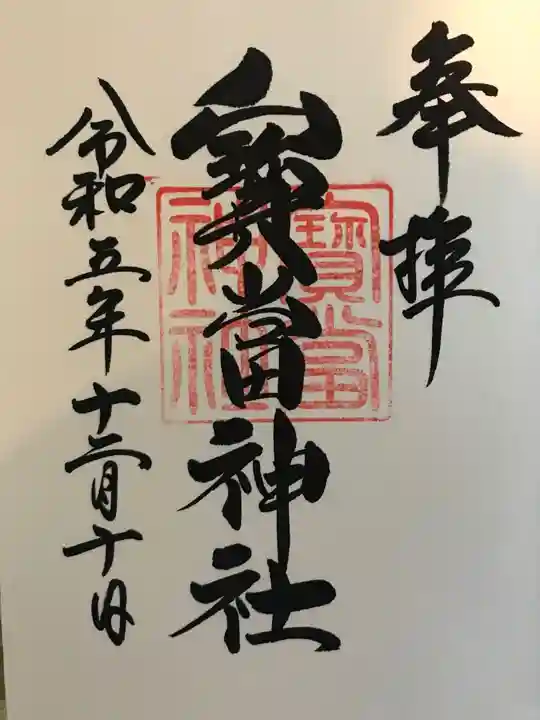 奉拝
寳當神社
寳當神社
令和五年十二月十日